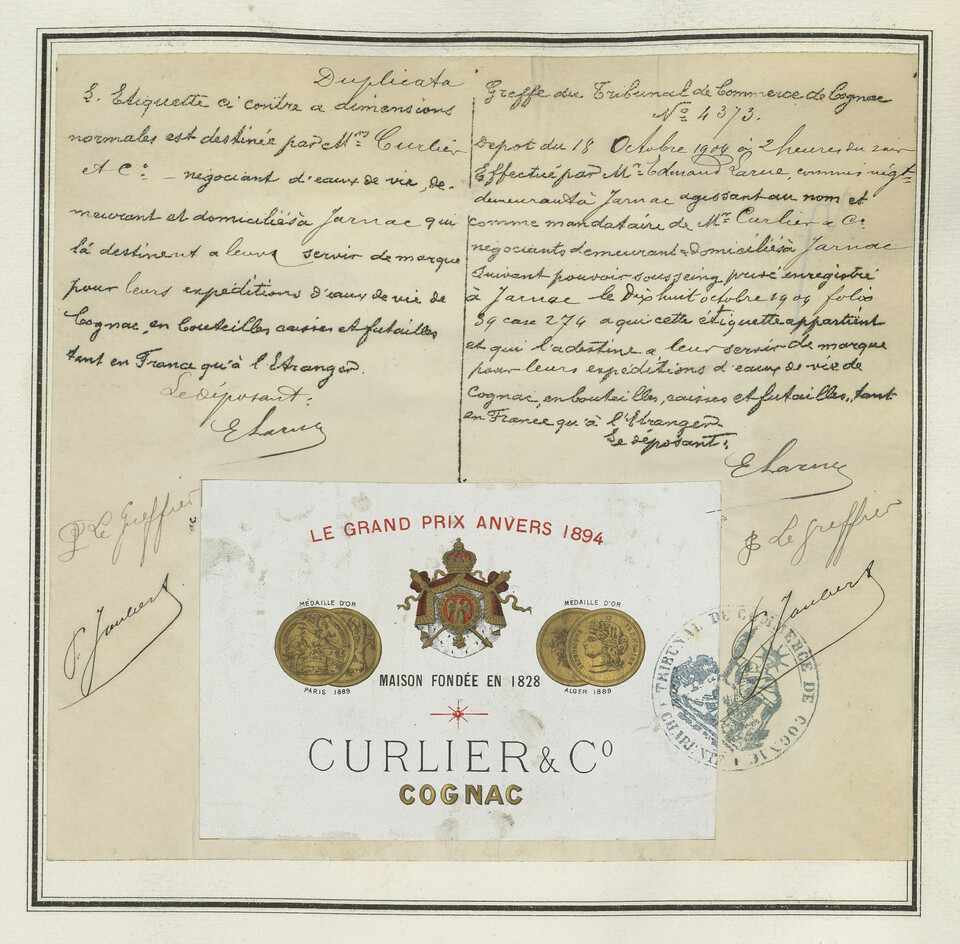 Duplicata
L'Etiquette ci contre a dimensions
normales est destinée par Mrs Curlier
et Co. negociant d'eaux de vie, de-
meurant et domiciliés à Jarnac qui
la destinent a leurs servir de marque
pour leurs expéditions d'eaux de vie de
Cognac, en bouteilles caisses et futailles
tant en France qu'à l'Etranger.
Le déposant:
E Larue
Le Greffier
Greffe du Tribunal de Commerce de Cognac
No 4373.
Depot du 18 Octobre 1904 à 2 heures du soir
Effectué par Mr Edmond Larue, commis négt
demeurant à Jarnac agissant au nom et
comme mandataire de Mrs Curlier & Co
negociants demeurant & domiciliés à Jarnac
suivant pouvoir sous seing privé enregistré
à Jarnac le Dix huit octobre 1904 folio
39 case 274 a qui cette étiquette appartient
et qui l'a destine a leur servir de marque
pour leurs expéditions d'eaux de vie de
Cognac, en bouteilles, caisses et futailles, tant
en France qu'à l'Etranger
Le déposant:
E Larue
Le Greffier
LE GRAND PRIX ANVERS 1894
MÉDAILLE D'OR
PARIS 1889
MÉDAILLE D'OR
ALGER 1889
MAISON FONDÉE EN 1828
CURLIER & Co
COGNAC
TRIBUNAL DE COMMERCE DE COGNAC
(CHARENTE)